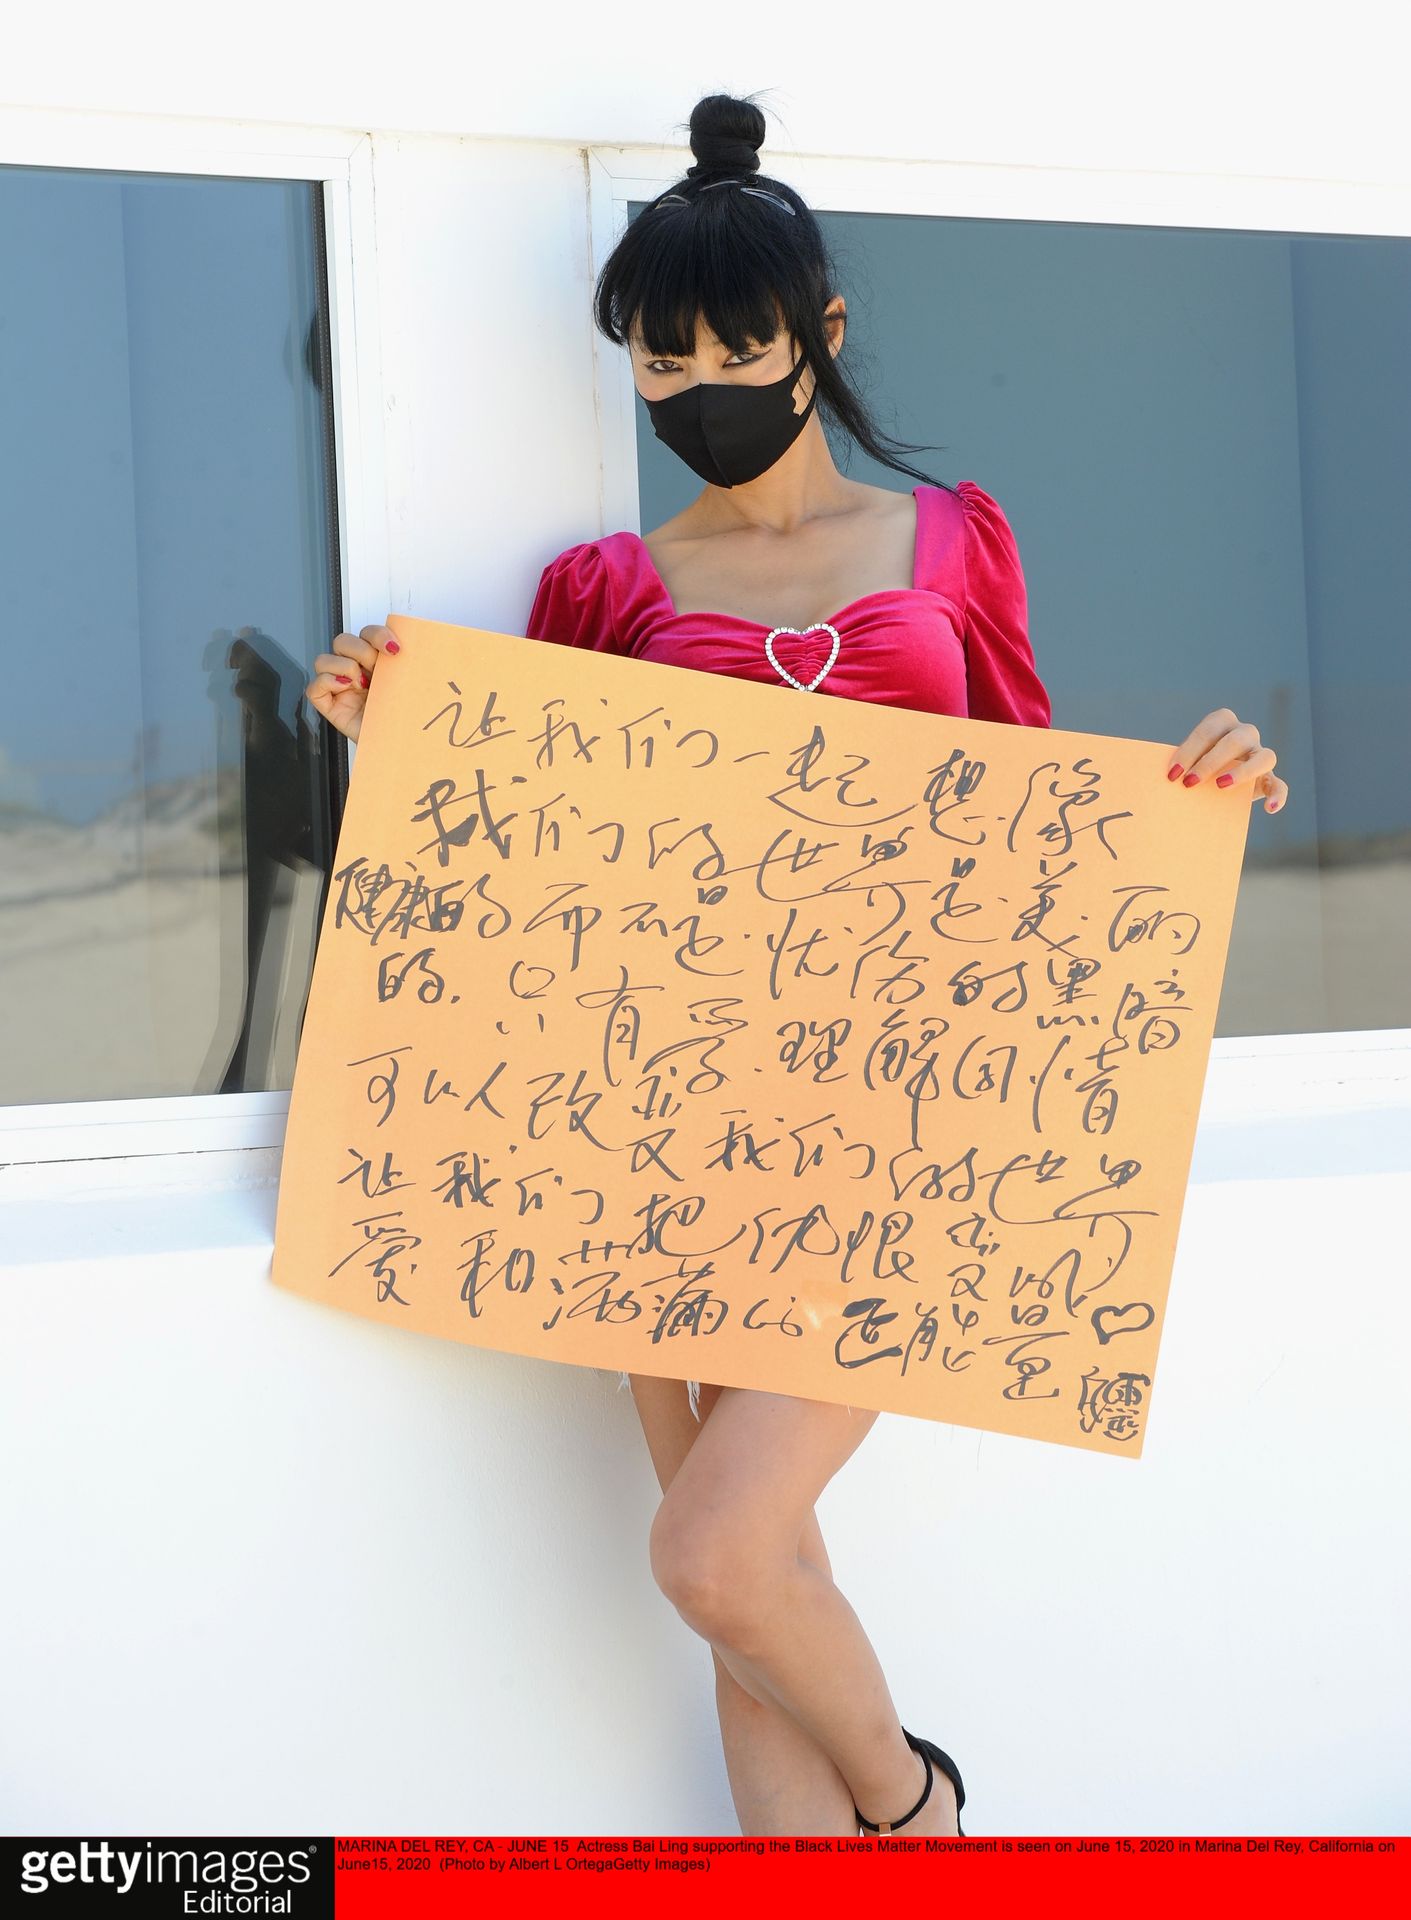 让我们一起想像
我们的世界是美丽
健康的而不是忧伤的黑暗
的.只有爱.理解同情
可以改变我们的世界
让我们把仇恨变成
爱和洒满的正能量♡
gettyimages®
Editorial
MARINA DEL REY, CA - JUNE 15 Actress Bai Ling supporting the Black Lives Matter Movement is seen on June 15, 2020 in Marina Del Rey, California on
June15, 2020 (Photo by Albert L OrtegaGetty Images)